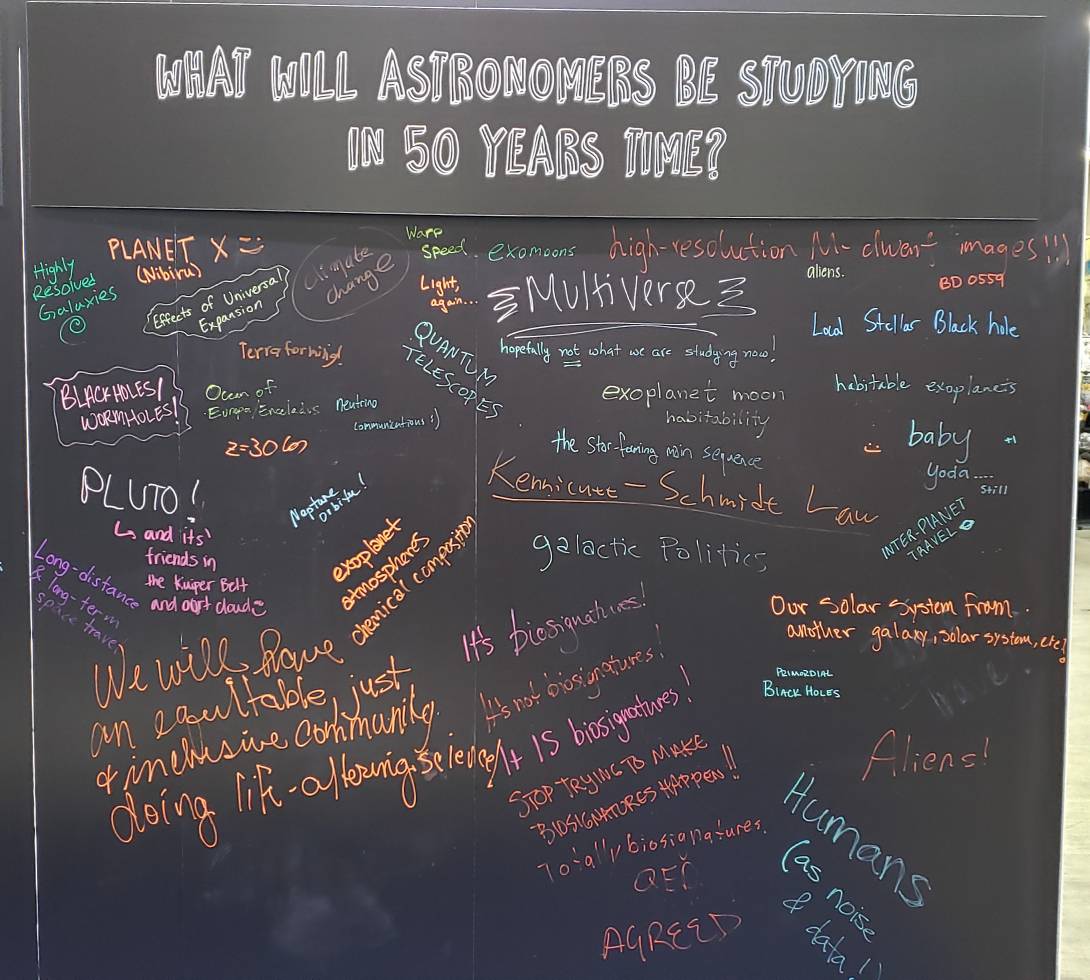 WHAT WILL ASTRONOMERS BE STUDYING
IN 50 YEARS TIME?
PLANET X
(Nibiru)
Highly
Resolved
Galaxies
Effects of Universal
Expansion
Climate
change
Warp
Speed
Light,
again...
exomoons
high-resolution M-dwarf images!!!
aliens.
BD 0559
Multiverse
hopefully not what we are studying now!
Local Stellar Black hole
Terraforming!
QUANTUM
TELESCOPES
BLACKHOLES/
WORMHOLES!
Ocean of
Europa/Enceladus
Neutrino
communications :)
z=30
exoplanet moon
habitability
habitable exoplanets
the star-forming main sequence
baby
Yoda....
still
+1
PLUTO!
↳ and its'
friends in
the Kuiper Belt
and oort cloud
Neptune
Orbiter!
Kennicutt - Schmidt Law
INTER-PLANET
TRAVEL
galactic Politics
exoplanet
atmospheres
chemical composition
Long-distance
& long-term
space travel
Our Solar System from
another galaxy, solar system, etc!
We will have
an equitable, just
& inclusive community
doing life-altering science!
It's biosignatures!
It's not biosignatures!
It IS biosignatures!
STOP TRYING TO MAKE
BIOSIGNATURES HAPPEN!!
Totally biosignatures.
QED
AGREED
PRIMORDIAL
BLACK HOLES
Aliens!
Humans
(as noise
& data!)